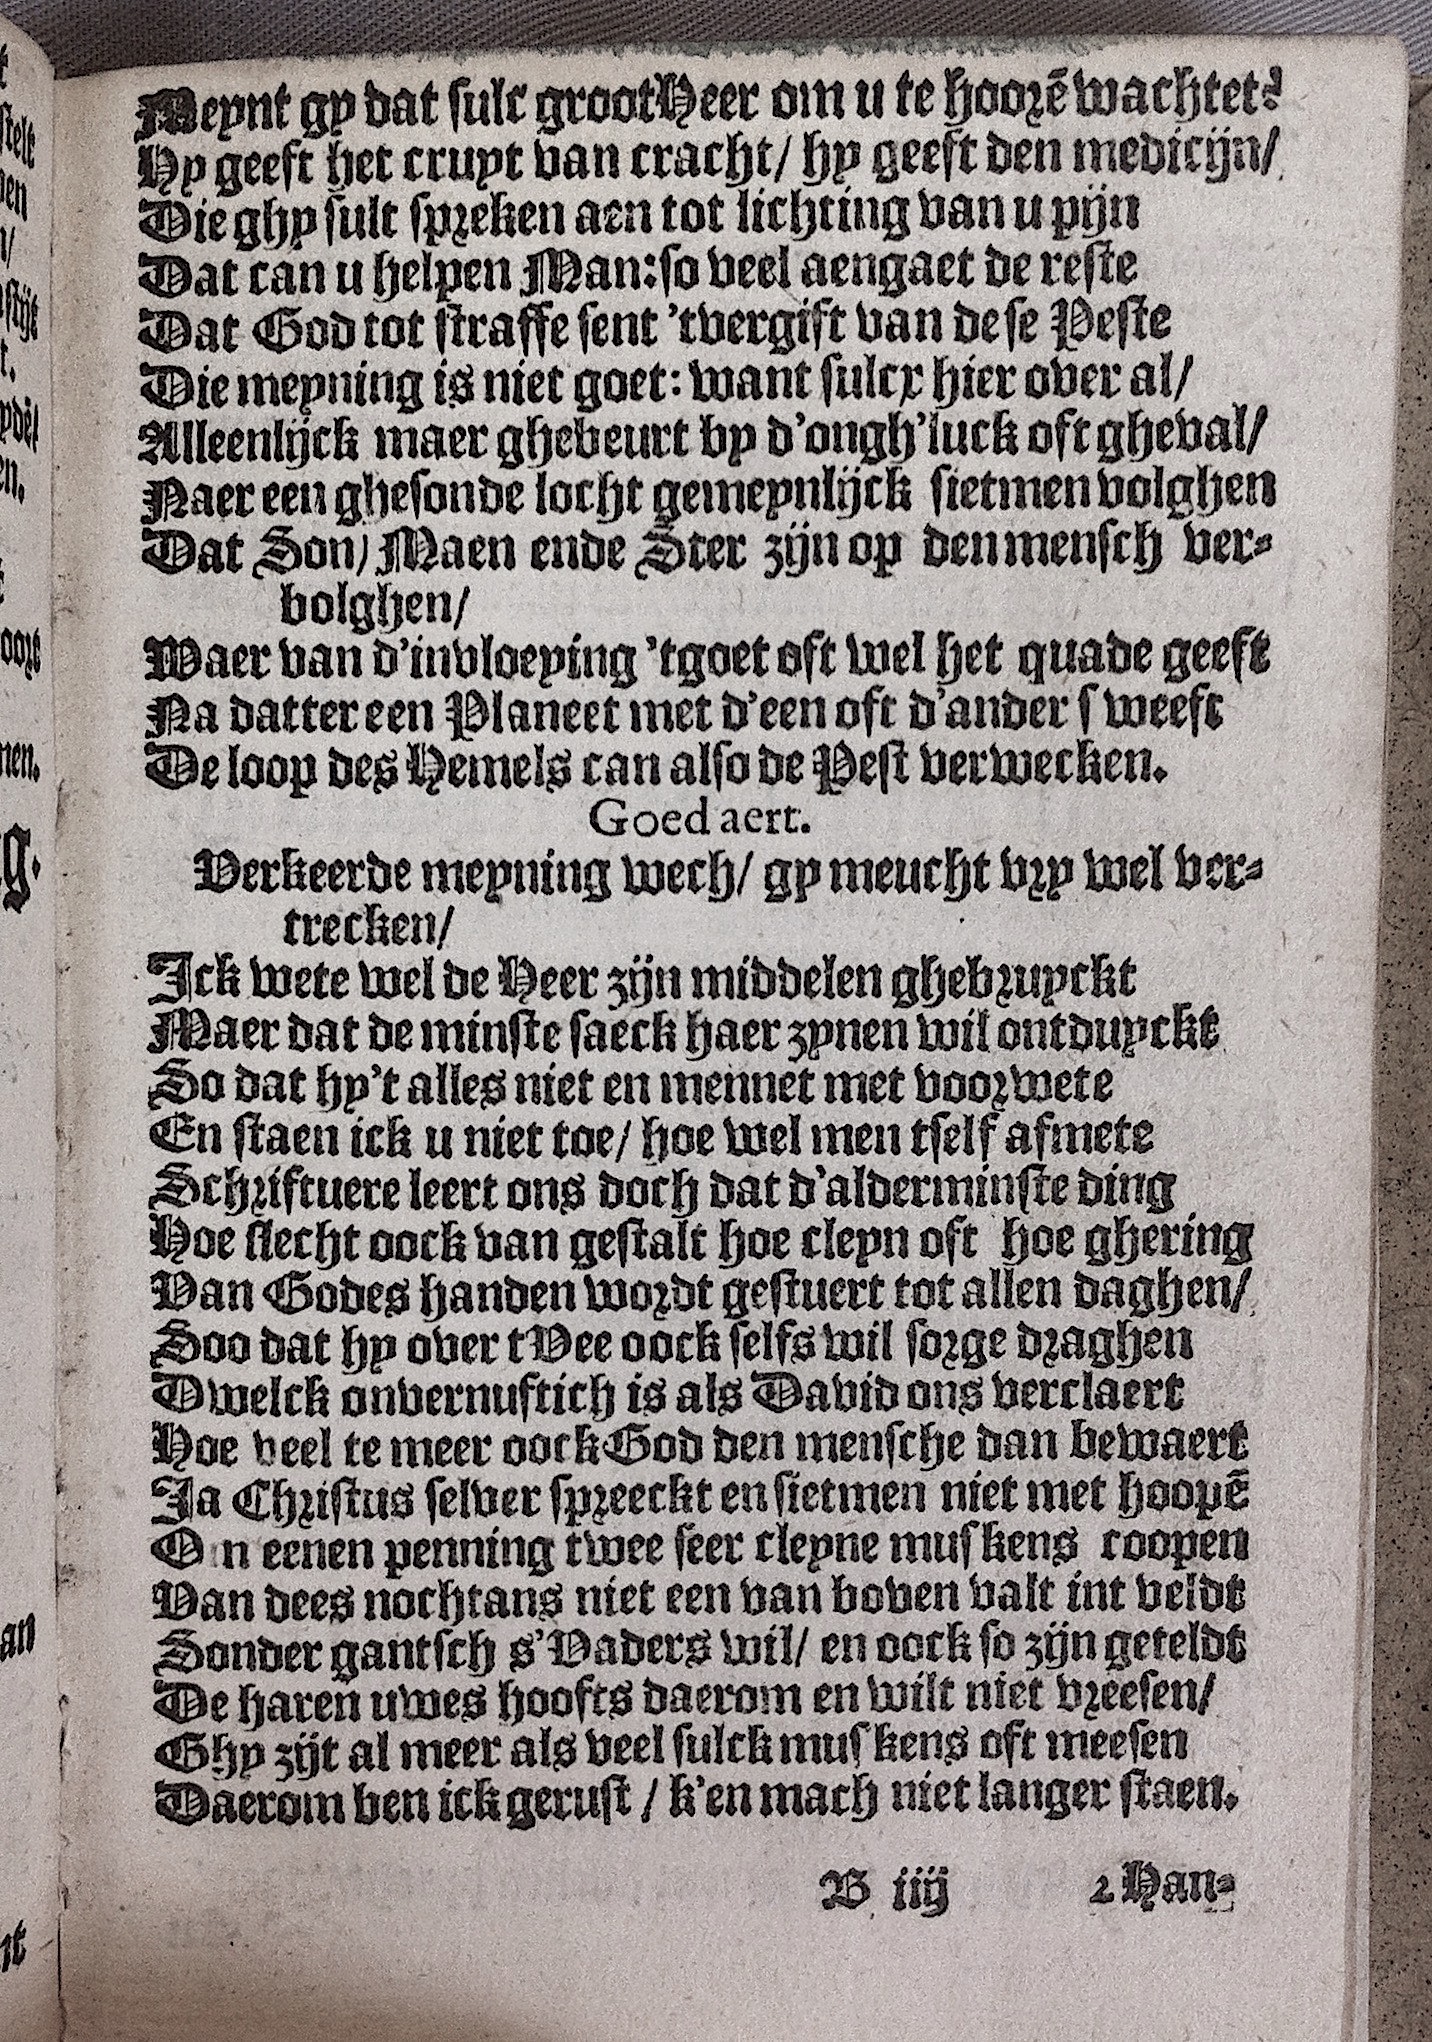 Meynt gy dat sulc groot Heer om u te hoorē wachtet?
Hy geeft het cruyt van cracht/ hy geeft den medicijn/
Die ghy sult spreken aen tot lichting van u pijn
Dat can u helpen Man: so veel aengaet de reste
Dat God tot straffe sent 'tvergift van dese Peste
Die meyning is niet goet: want sulcx hier over al/
Alleenlijck maer ghebeurt by d'ongh'luck oft gheval/
Naer een ghesonde locht gemeynlijck sietmen volghen
Dat Son/ Maen ende Ster zijn op den mensch ver-
bolghen/
Waer van d'invloeying 'tgoet oft wel het quade geeft
Na datter een Planeet met d'een oft d'ander sweeft
De loop des Hemels can also de Pest verwecken.
Goedaert.
Verkeerde meyning wech/ gy meucht vry wel ver-
trecken/
Ick wete wel de Heer zijn middelen ghebruyckt
Maer dat de minste saeck haer zynen wil ontduyckt
So dat hy't alles niet en mennet met voorwete
En staen ick u niet toe/ hoe wel men tself afmete
Schriftuere leert ons doch dat d'alderminste ding
Hoe slecht oock van gestalt hoe cleyn oft hoe ghering
Van Godes handen wordt gestuert tot allen daghen/
Soo dat hy over tVee oock selfs wil sorge draghen
Dwelck onvernuftich is als David ons verclaert
Hoe veel te meer oock God den mensche dan bewaert
Ja Christus selver spreeckt en sietmen niet met hoopē
Om eenen penning twee seer cleyne muskens coopen
Van dees nochtans niet een van boven valt int veldt
Sonder gantsch s'Vaders wil/ en oock so zijn geteldt
De haren uwes hoofts daerom en wilt niet vreesen/
Ghy zijt al meer als veel sulck muskens oft meesen
Daerom ben ick gerust / k'en mach niet langer staen.
B iiij 2 Han-